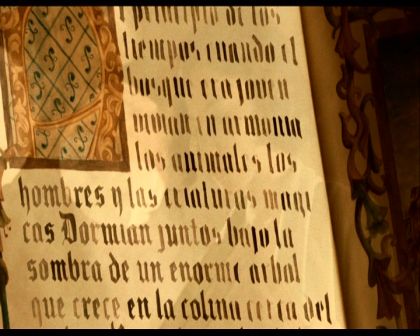 l principio de los
tiempos cuando el
bosque era joven
vivian en armonia
los animales los
hombres y las criaturas magi
cas Dormian juntos bajo la
sombra de un enorme arbol
que crece en la colina cerca del